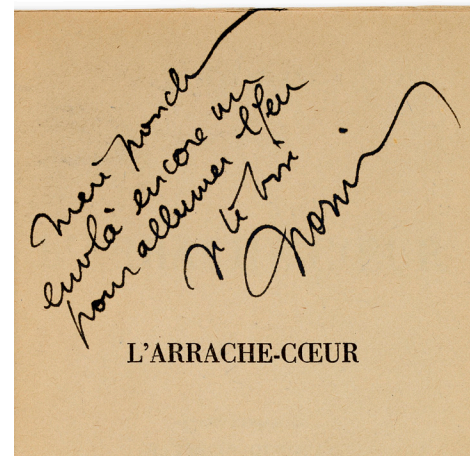 Mère pouche
envlà encore un
pour allumer l'feu
J te bise
Boris
L'ARRACHE-CŒUR